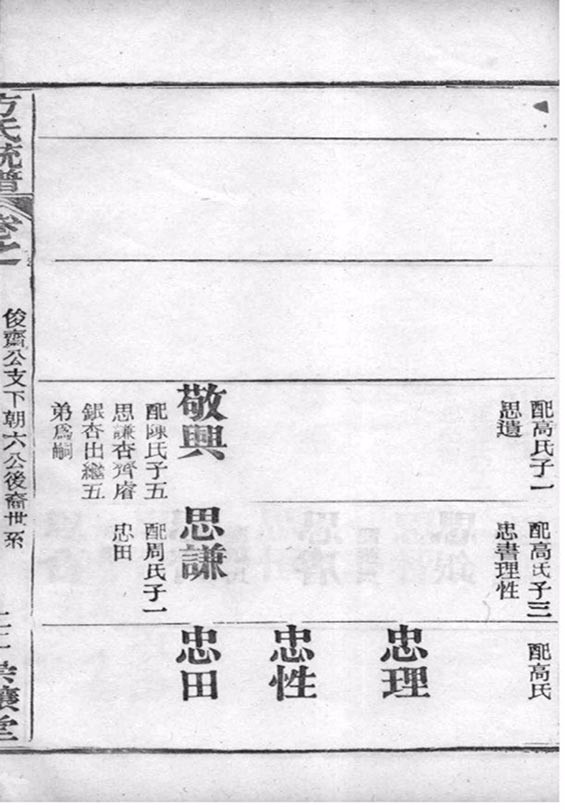 配高氏子一
思遺
敬興
配陳氏子五
思謙杏齊睿
銀杏出繼五
弟爲嗣
配高氏子三
忠書理性
思謙
配周氏子一
忠田
配高氏
忠理
忠性
忠田
方氏統譜
卷之一
俊齋公支下朝六公後裔世系
堂